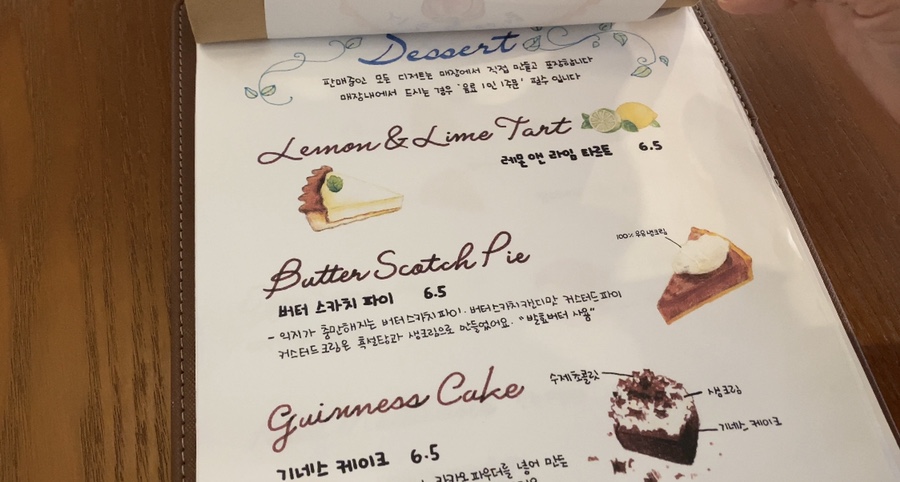 Dessert
판매중인 모든 디저트는 매장에서 직접 만들고 포장합니다
매장내에서 드시는 경우 '음료 1인 1주문' 필수 입니다
Lemon & Lime Tart
레몬 앤 라임 타르트 6.5
100% 우유생크림
Butter Scotch Pie
버터 스카치 파이 6.5
- 의지가 충만해지는 버터스카치파이. 버터스카치캔디맛 커스터드파이
커스터드크림은 흑설탕과 생크림으로 만들었어요. "발효버터 사용"
수제초콜릿
생크림
Guinness Cake
기네스 케이크
기네스 케이크 6.5
카카오파우더를 넣어 만든